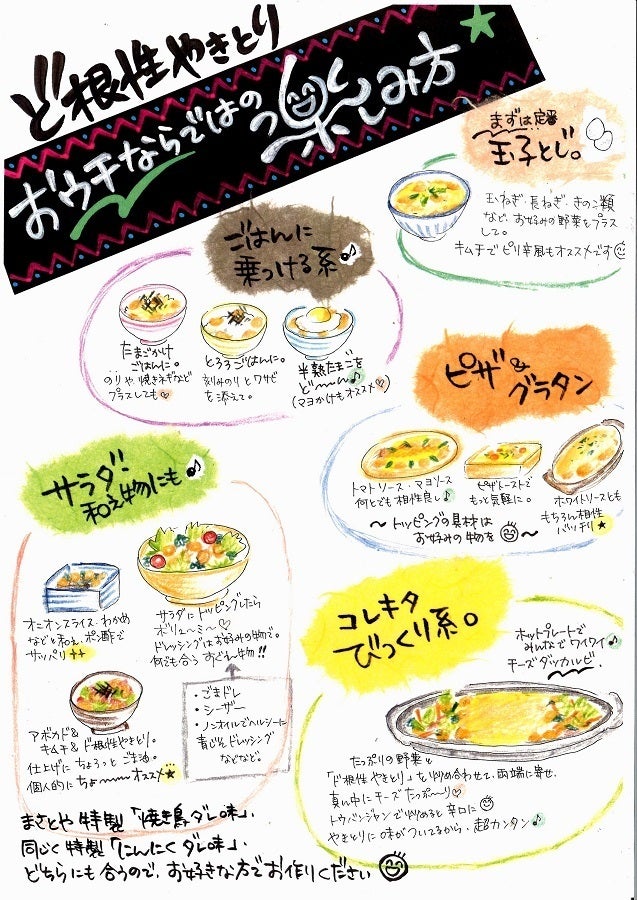 ど根性やきとり
おウチならではの
楽しみ方
まずは定番
玉子とじ。
玉ねぎ・長ねぎ・きのこ類
など、お好みの野菜をプラス
して。
キムチでピリ辛風もオススメです
ごはんに
乗っける系♪
たまごかけ
ごはんに。
のりや焼きネギなど
プラスしても♡
とろろごはんに。
刻みのりとワサビ
を添えて。
半熟たまごを
ど〜〜ん♪
(マヨかけもオススメ♡)
ピザ&
グラタン
トマトソース・マヨソース
何とでも相性良し♪
ピザトーストで
もっと気軽に。
ホワイトソースとも
もちろん相性
バッチリ★
〜トッピングの具材は
お好みの物を〜
サラダ・
和え物にも♪
オニオンスライス・わかめ
などと和え、ポン酢で
サッパリ++
サラダにトッピングしたら
ボリュ〜ミ〜♡
ドレッシングはお好みの物で。
何でも合うすぐれ物!!
・ごまドレ
・シーザー
・ノンオイルでヘルシーに
青じそドレッシング
などなど。
アボカド&
キムチ&ド根性やきとり。
仕上げにちょろっとごま油。
個人的にちょ〜〜オススメ★
コレキタ
びっくり系。
ホットプレートで
みんなでワイワイ♪
チーズダッカルビ。
たっぷりの野菜と
「ド根性やきとり」を炒め合わせて、両端に寄せ、
真ん中にチーズたっぷ〜り♡
トウバンジャンで炒めると辛口に
やきとりに味がついてるから、超カンタン♪
まさとや特製「焼き鳥ダレ味」、
同じく特製「にんにくダレ味」、
どちらにも合うので、お好きな方でお作りください